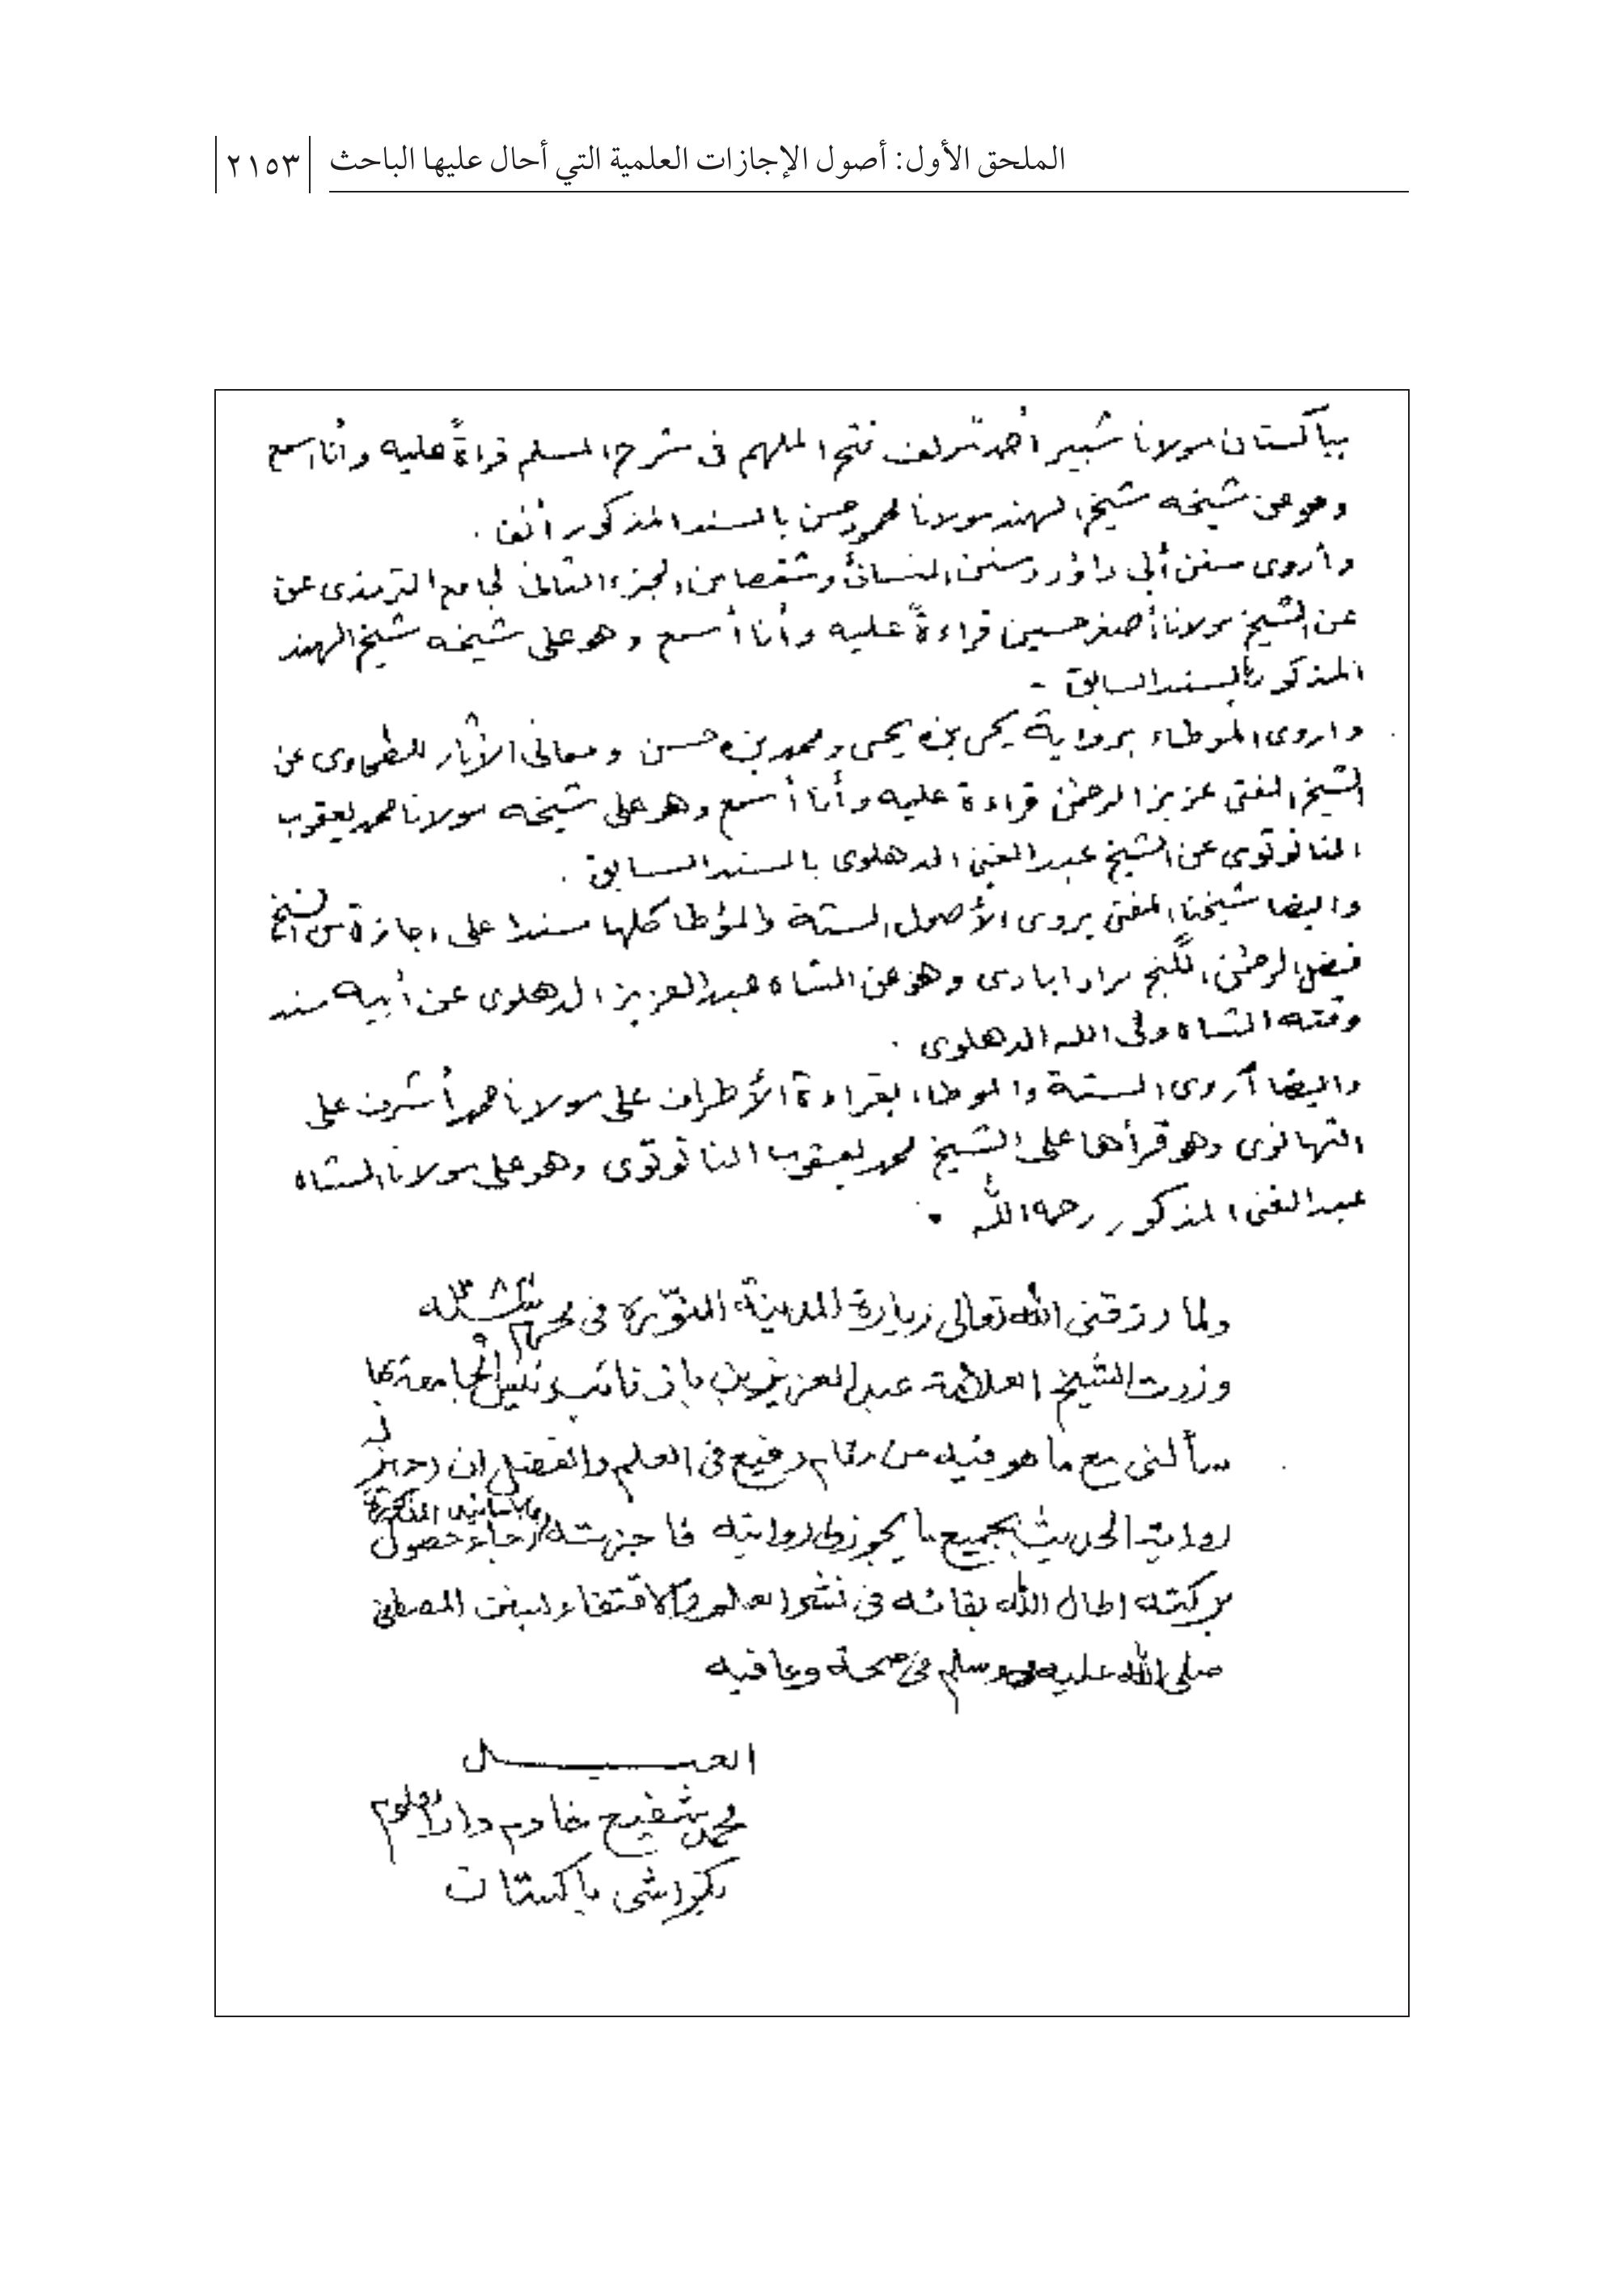 الملحق الأول: أصول الإجازات العلمية التي أحال عليها الباحث ٢١٥٣
بباكستان مولانا شبير أحمد مؤلف فتح الملهم فى شرح المسلم قراءةً عليه وأنا اسمع
وهو عن شيخه شيخ الهند مولانا محمود حسن بالسند المذكور أنفا .
وأروى سنن أبى داؤد وسنن النسائ وشقصا من الجزء الثانى لجامع الترمذى عن
عن الشيخ مولانا أصغر حسين قراءةً عليه وأنا أسمع وهو على شيخه شيخ الهند
المذكور بالسند السابق -
واروى الموطاء برواية يحى بن يحيى ومحمد بن حسن ومعانى الأثار للطحاوى عن
الشيخ المفتى عزيز الرحمٰن قراءة عليه وأنا أسمع وهو على شيخه مولانا محمد يعقوب
النانوتوى عن الشيخ عبد الغنى الدهلوى بالسند السابق .
وايضا شيخنا المفتى يروى الأصول الستة والمؤطا كلها مسندا على اجازة من الشيخ
فضل الرحمٰن الگنج مراد ابادى وهو عن الشاه عبد العزيز الدهلوى عن أبيه مسند
وقته الشاه ولى الله الدهلوى .
وايضا أروى الستة والموطاء بقراءة الأطراف على مولانا محمد أشرف على
التهانوى وهو قرأها على الشيخ محمد يعقوب النانوتوى وهو على مولانا الشاه
عبد الغنى المذكور رحمه الله .
ولما رزقنى الله تعالى زيارة المدينة المنوّرة فى محرم
وزرت الشيخ العلامة عبد العزيز بن باز نائب رئيس الجامعة بها
سألنى مع ما هو فيه من مقام رفيع فى العلم والفضل ان اجيز له
رواية الحديث بجميع ما يجوز لى روايته فاجزته بالاسانيد المذكورة رجاء حصول
بركته اطال الله بقائه فى نشر العلم والاقتفاء لسنن المصطفى
صلى الله عليه وسلم فى صحة وعافيه
العبد
محمد شفيع خادم دار العلوم
كراشى باكستان